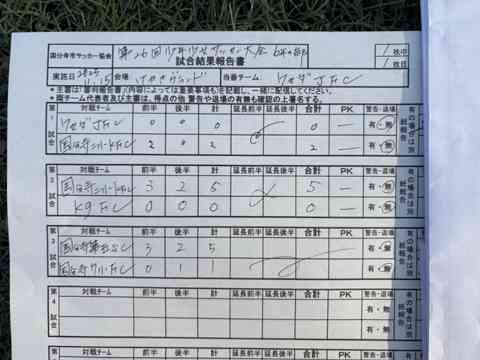 国分寺市サッカー協会 第26回少年少女サッカー大会 6年の部 1 枚中
試合結果報告書 1 枚目
実施日 2025 11.15 会場 けやきグランド 当番チーム: ワセダJFC
*主審は「審判報告書」(内容によっては重要事項も)を記載し、一緒に配信してください。
*両チーム代表者及び主審は、得点の他 警告や退場の有無も確認の上署名する。
第1試合 対戦チーム 前半 後半 計 延長前半 延長後半 合計 PK 警告・退場 有の場合は別紙報告
ワセダJFC 0 0 0 0 — 有・無
2 0 2 2 — 有・無
第2試合 対戦チーム 前半 後半 計 延長前半 延長後半 合計 PK 警告・退場 有の場合は別紙報告
3 2 5 5 — 有・無
K9 FC 0 0 0 0 — 有・無
第3試合 対戦チーム 前半 後半 計 延長前半 延長後半 合計 PK 警告・退場 有の場合は別紙報告
3 2 5 有・無
0 1 1 有・無
第4試合 対戦チーム 前半 後半 計 延長前半 延長後半 合計 PK 警告・退場 有の場合は別紙報告
有・無
有・無
対戦チーム 前半 後半 計 延長前半 延長後半 合計 PK 警告・退場